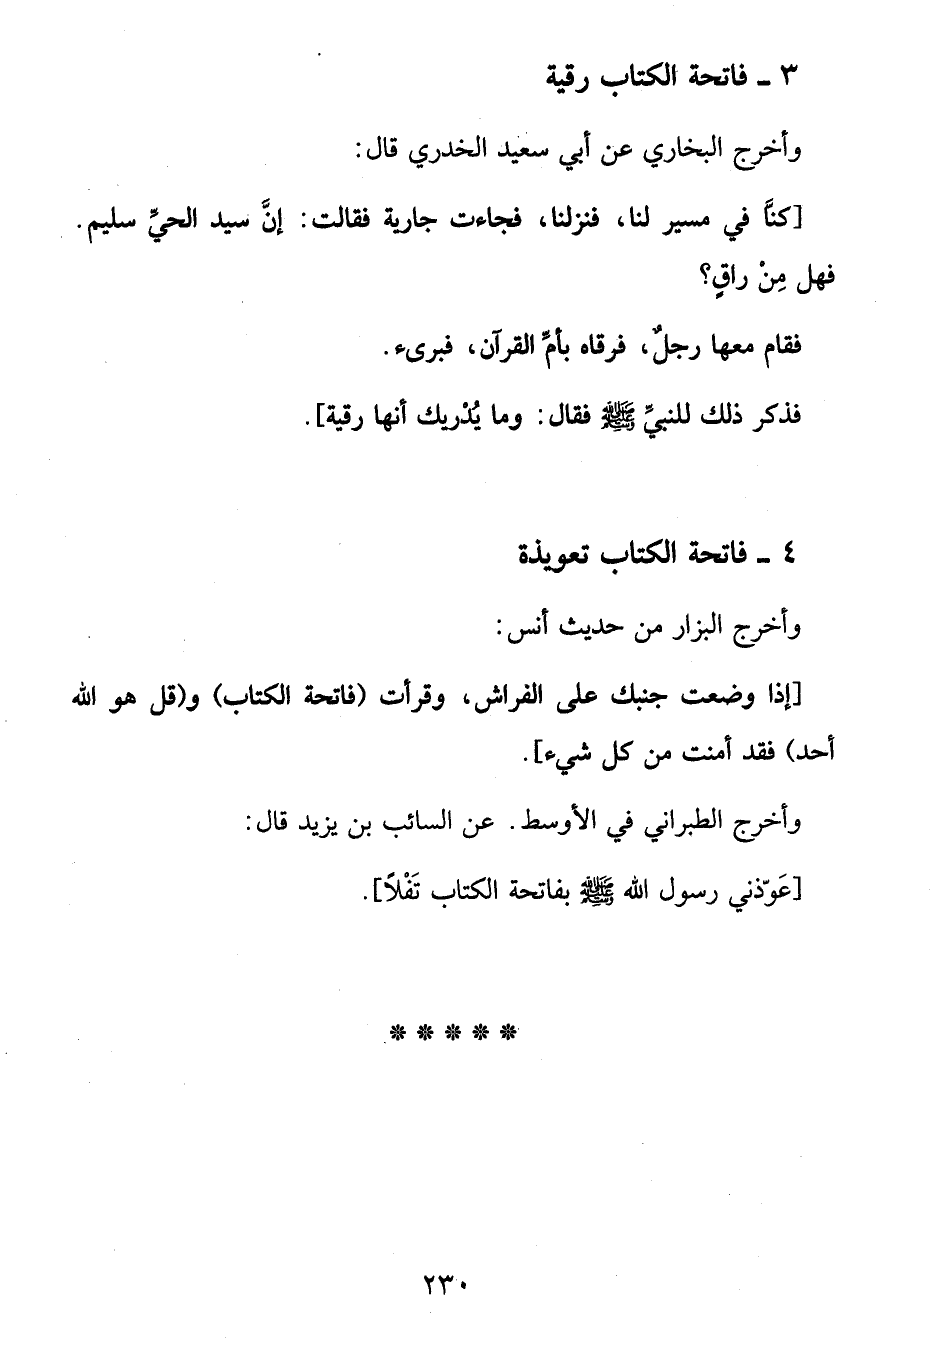 ٣ ـ فاتحة الكتاب رقية
وأخرج البخاري عن أبي سعيد الخدري قال:
[كنَّا في مسير لنا، فنزلنا، فجاءت جارية فقالت: إنَّ سيد الحيِّ سليم.
فهل مِنْ راقٍ؟
فقام معها رجلٌ، فرقاه بأمِّ القرآن، فبرىء.
فذكر ذلك للنبيِّ ﷺ فقال: وما يُدْريك أنها رقية].
٤ ـ فاتحة الكتاب تعويذة
وأخرج البزار من حديث أنس:
[إذا وضعت جنبك على الفراش، وقرأت (فاتحة الكتاب) و(قل هو الله
أحد) فقد أمنت من كل شيء].
وأخرج الطبراني في الأوسط. عن السائب بن يزيد قال:
[عَوّذني رسول الله ﷺ بفاتحة الكتاب تَفْلاً].
* * * * *
٢٣٠